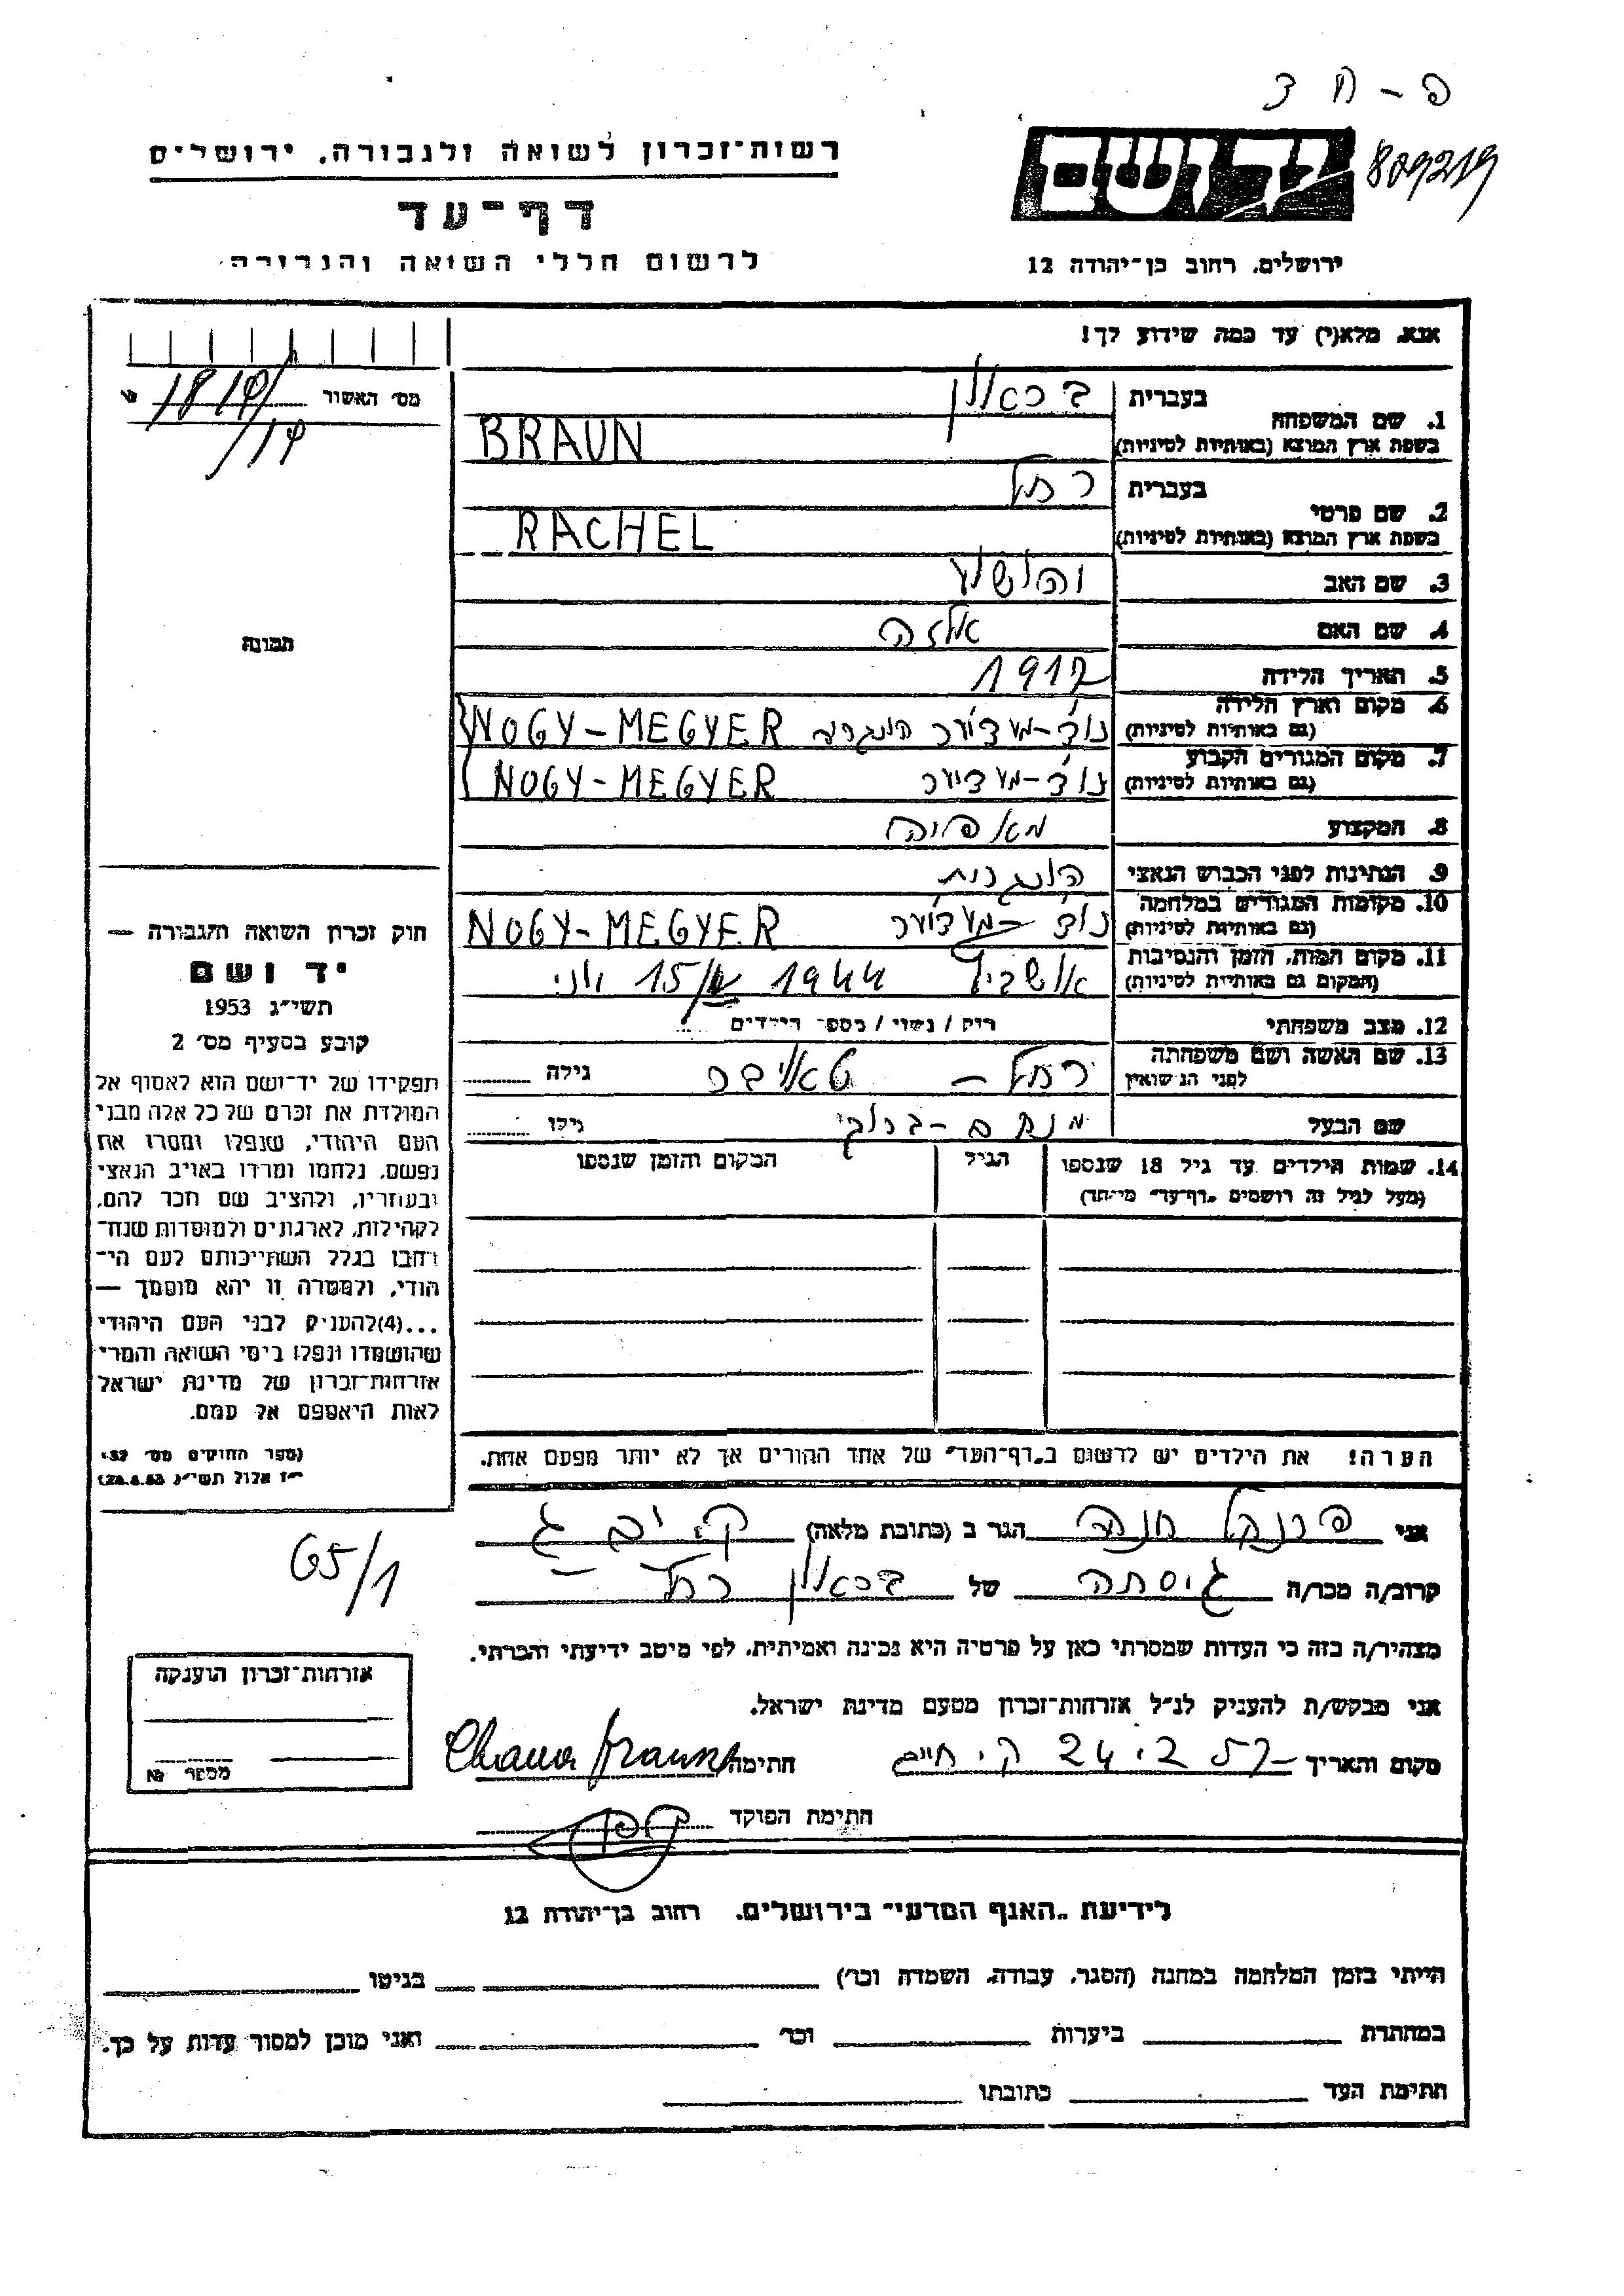 פ - ח 3
רשות־זכרון לשואה ולגבורה, ירושלים
ידושם
809219
דף־עד
לרשום חללי השואה והגבורה
ירושלים, רחוב בן־יהודה 12
אנא, מלא(י) עד כמה שידוע לך!
מס׳ האשור
1. שם המשפחה
בעברית בראון
בשפת ארץ המוצא (באותיות לטיניות) BRAUN
2. שם פרטי
בעברית רחל
בשפת ארץ המוצא (באותיות לטיניות) RACHEL
3. שם האב
4. שם האם
5. תאריך הלידה 1917
6. מקום וארץ הלידה
(גם באותיות לטיניות) NOGY-MEGYER
7. מקום המגורים הקבוע
(גם באותיות לטיניות) NOGY-MEGYER
8. המקצוע
9. הנתינות לפני הכבוש הנאצי הונגרית
10. מקומות המגורים במלחמה
(גם באותיות לטיניות) NOGY-MEGYER
11. מקום המות, הזמן והנסיבות
(המקום גם באותיות לטיניות) אושביץ 1944 15/ יוני
12. מצב משפחתי רוק / נשוי / מספר הילדים
13. שם האשה ושם משפחתה
לפני הנשואין רחל – טאובר גילה
שם הבעל מנחם - גילו
14. שמות הילדים עד גיל 18 שנספו
(מעל לגיל זה רושמים „דף־עד” מיוחד)
הגיל
המקום והזמן שנספו
הערה! את הילדים יש לרשום ב„דף־העד” של אחד ההורים אך לא יותר מפעם אחת.
תמונה
חוק זכרון השואה והגבורה —
יד ושם
תשי״ג 1953
קובע בסעיף מס׳ 2
תפקידו של יד־ושם הוא לאסוף אל
המולדת את זכרם של כל אלה מבני
העם היהודי, שנפלו ומסרו את
נפשם, נלחמו ומרדו באויב הנאצי
ובעוזריו, ולהציב שם וזכר להם,
לקהילות, לארגונים ולמוסדות שנח־
רבו בגלל השתייכותם לעם הי־
הודי, ולמטרה זו יהא מוסמך —
...(4)להעניק לבני העם היהודי
שהושמדו ונפלו בימי השואה והמרי
אזרחות־זכרון של מדינת ישראל
לאות היאספם אל עמם.
(ספר החוקים מס׳
י״ז אלול תשי״ג
65/1
אני פרנקל חנה הגר ב (כתובת מלאה)
קרוב/ה מכר/ה גיסתה של בראון רחל
מצהיר/ה בזה כי העדות שמסרתי כאן על פרטיה היא נכונה ואמיתית, לפי מיטב ידיעתי והכרתי.
אני מבקש/ת להעניק לנ״ל אזרחות־זכרון מטעם מדינת ישראל.
מקום והתאריך ק. חיים 24.2.57 חתימה
חתימת הפוקד
אזרחות־זכרון הוענקה
מספר №
לידיעת „האגף המדעי” בירושלים, רחוב בן־יהודה 12
הייתי בזמן המלחמה במחנה (הסגר, עבודה, השמדה וכו׳) בגיטו
במחתרת ביערות וכו׳ ואני מוכן למסור עדות על כך.
חתימת העד כתובתו